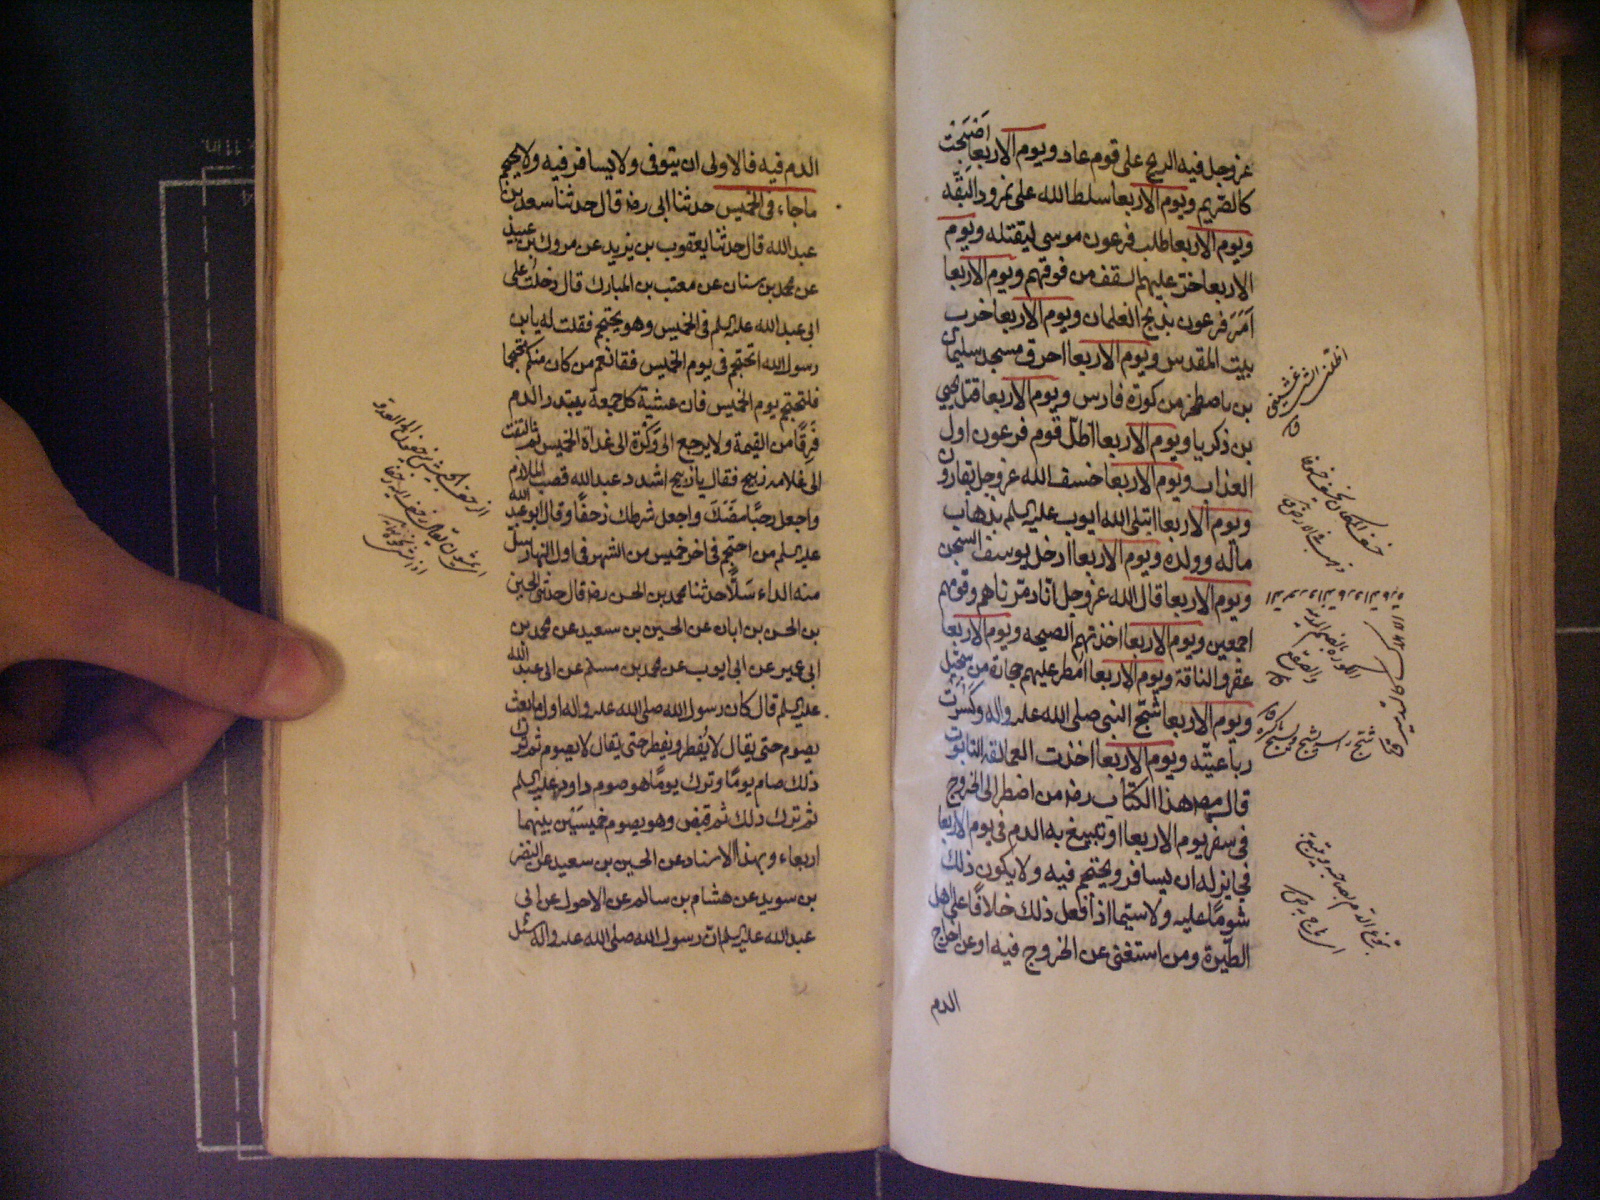 عز وجل فيه الريح على قوم عاد ويوم الاربعا اصبحت
كالصريم ويوم الاربعا سلط الله على نمرود البقه
ويوم الاربعا طلب فرعون موسى ليقتله ويوم
الاربعا خر عليهم السقف من فوقهم ويوم الاربعا
امر فرعون بذبح الغلمان ويوم الاربعا خرب
بيت المقدس ويوم الاربعا احرق مسجد سليمان
بن باصطخر من كورة فارس ويوم الاربعا قتل يحيى
بن ذكريا ويوم الاربعا اظل قوم فرعون اول
العذاب ويوم الاربعا خسف الله عز وجل بقارون
ويوم الاربعا ابتلى الله ايوب عليه السلم بذهاب
ماله وولده ويوم الاربعا ادخل يوسف السجن
ويوم الاربعا قال الله عز وجل انا دمرناهم وقومهم
اجمعين ويوم الاربعا اخذتهم الصيحه ويوم الاربعا
عقرو الناقة ويوم الاربعا امطر عليهم حجارة من سجيل
ويوم الاربعا شج النبى صلى الله عليه واله وكسرت
رباعيته ويوم الاربعا اخذت العمالقه التابوت
قال مصه هذا الكتاب رضه من اضطر الى الخروج
فى سفر يوم الاربعا او تبيغ به الدم فى يوم الاربعا
فجايز له ان يسافر ويحتجم فيه ولا يكون ذلك
شوما عليه ولا سيما اذا فعل ذلك خلافا على اهل
الطيرة ومن استغنى عن الخروج فيه او عن اخراج
الدم
الدم فيه فالاولى ان يتوقى ولا يسافر فيه ولا يحتجم
ما جاء فى الخميس حدثنا ابى رضه قال حدثنا سعد بن
عبد الله قال حدثنا يعقوب بن يزيد عن مروك بن عبيد
عن محمد بن سنان عن معتب بن المبارك قال دخلت على
ابى عبد الله عليه السلم فى الخميس وهو يحتجم فقلت له يا بن
رسول الله اتحتجم فى يوم الخميس فقا نعم من كان منكم محتجما
فلتحتجم يوم الخميس فان عشية كل جمعة يبتدر الدم
فرقا من القيمة ولا يرجع الى وكره الى غداة الخميس ثم التفت
الى غلامه زبيج فقال يا زبيج اشدد عبد الله قصب الملازم
واجعل رحبا مضك واجعل شرطك زحفا وقال ابو عبد الله
عليه السلم من احتجم فى اخر خميس من الشهر فى اول النهار سل
منه الداء سلا حدثنا محمد بن الحسن رضه قال حدثنى الحسين
بن الحسن بن ابان عن الحسين بن سعيد عن محمد بن
ابى عمير عن ابى ايوب عن محمد بن مسلم عن ابى عبد الله
عليه السلم قال كان رسول الله صلى الله عليه واله اول ما بعث
يصوم حتى يقال لا يفطر ويفطر حتى يقال لا يصوم ثم ترك
ذلك صام يوما وترك يوما هو صوم داود عليه السلم
ثم ترك ذلك ثم قبض وهو يصوم خميسين بينهما
اربعاء وبهذا الاسناد عن الحسين بن سعيد عن النضر
بن سويد عن هشام بن سالم عن الاحول عن ابى
عبد الله عليه السلم ان رسول الله صلى الله عليه واله سئل